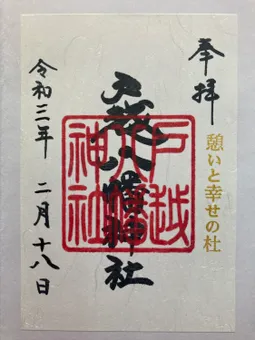 奉拝
憩いと幸せの杜
戸越八幡神社
戸越
八幡
神社
令和三年 二月十八日